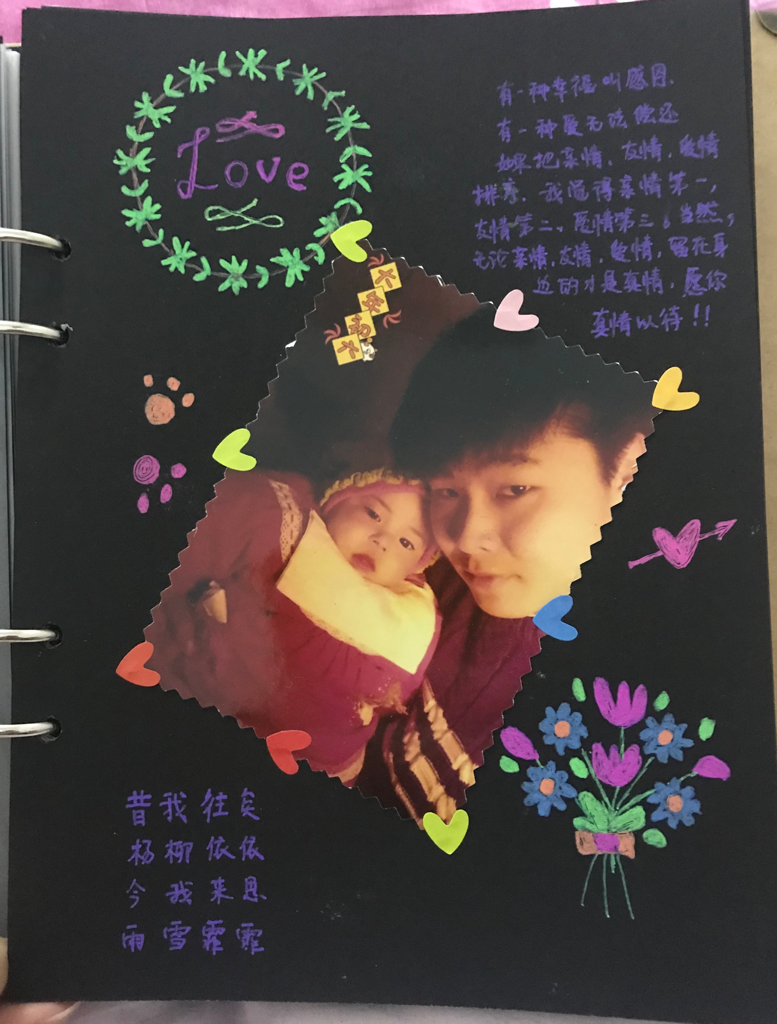 Love
有一种幸福叫感恩.
有一种爱无法偿还
如果把亲情、友情、爱情
排序.我觉得亲情第一,
友情第二、爱情第三。当然,
无论亲情,友情,爱情,留在身
边的才是真情,愿你
真情以待!!
大年初六
昔我往矣
杨柳依依
今我来思
雨雪霏霏